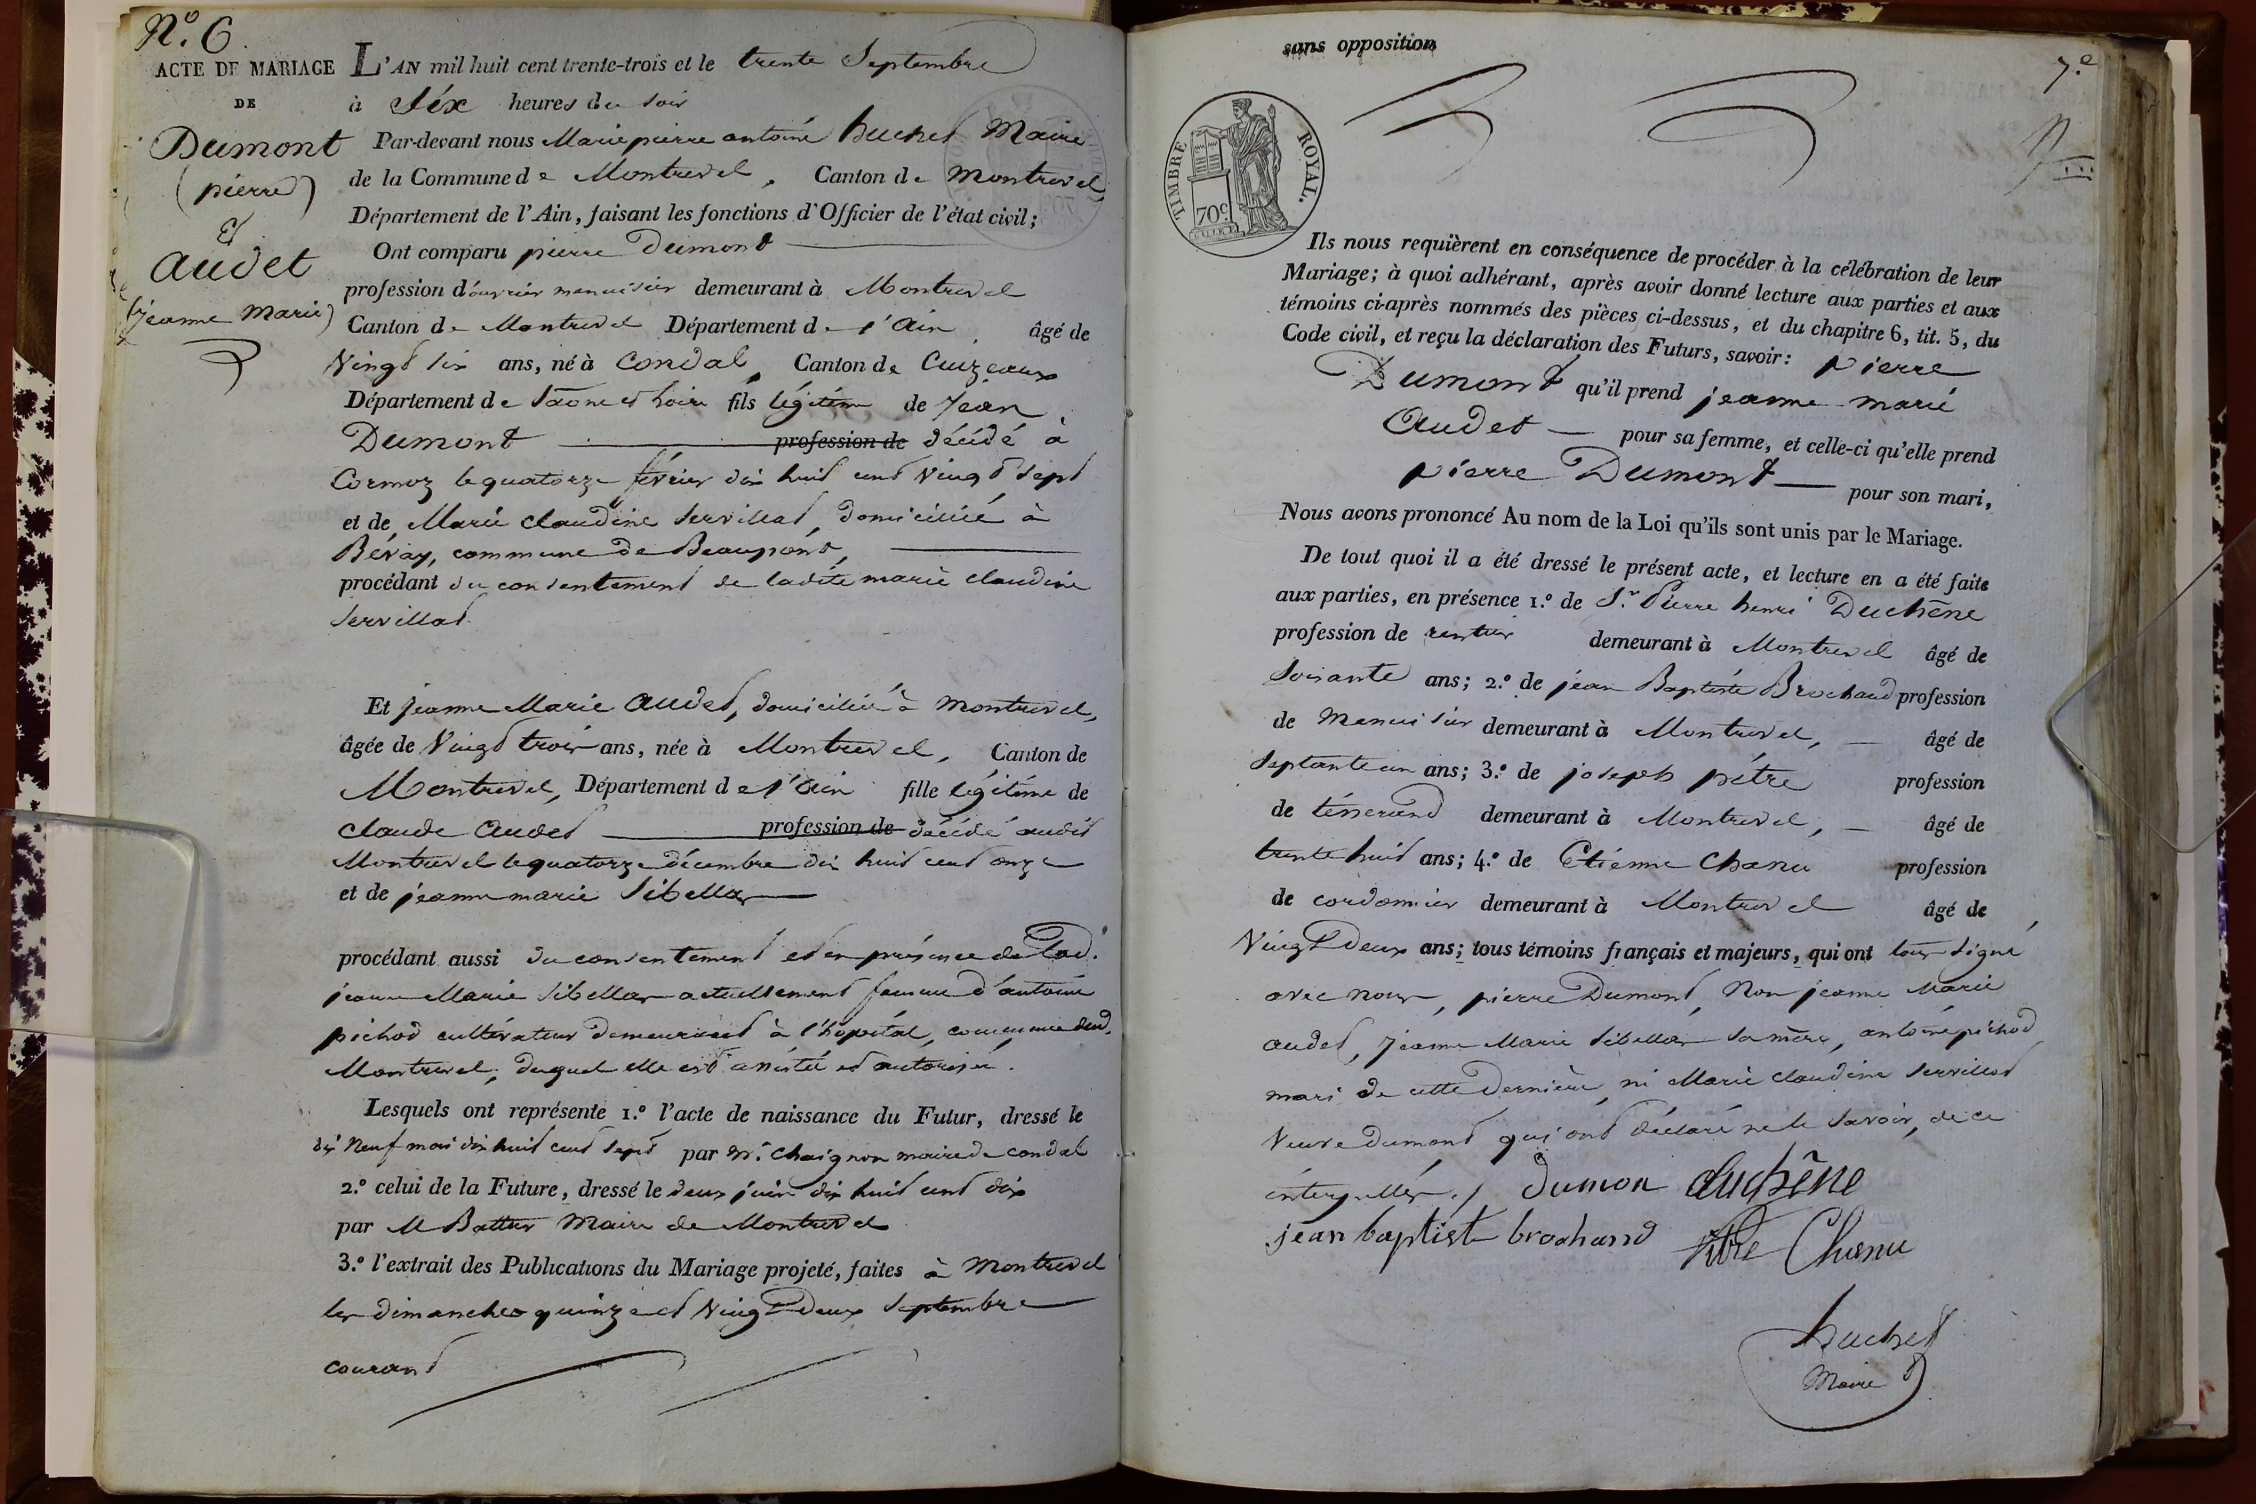 N.º 6
ACTE DE MARIAGE
DE
Dumont
(pierre)
Et
Audet
(jeanne Marie)
L'AN mil huit cent trente-trois et le trente Septembre
à Séx heures du soir
Par-devant nous Marie pierre antoine huchet Maire
de la Commune de Montrevel, Canton de Montrevel
Département de l'Ain, faisant les fonctions d'Officier de l'état civil;
Ont comparu pierre Dumont
profession d'ouvrier menuisier demeurant à Montrevel
Canton de Montrevel Département de l'Ain âgé de
Vingt six ans, né à Condal, Canton de Cuizeaux
Département de Saône et Loire fils légitime de Jean
Dumont profession de décédé à
Cormoz le quatorze février dix huit cent vingt sept
et de Marie claudine Servillat, domiciliée à
Bévay, commune de Beaupont,
procédant du consentement de ladite marie claudine
Servillat
Et jeanne Marie Audet, domiciliée à Montrevel,
âgée de Vingt trois ans, née à Montrevel, Canton de
Montrevel, Département de l'Ain fille légitime de
Claude Audet profession de décédé audit
Montrevel le quatorze décembre dix huit cent onze
et de jeanne marie Sibellas
procédant aussi du consentement et en présence de lad.
jeanne Marie Sibellas actuellement femme d'antoine
pichod cultivateur demeurant à l'hopital, commune dud.
Montrevel, duquel elle est assistée et autorisée.
Lesquels ont représente 1.º l'acte de naissance du Futur, dressé le
dix Neuf mai dix huit cent sept par Mr. Chaignon maire de condal
2.º celui de la Future, dressé le deux juin dix huit cent dix
par M Battur Maire de Montrevel
3.º l'extrait des Publications du Mariage projeté, faites à Montrevel
les dimanches quinze et Vingt Deux Septembre
courant
sans opposition
7.e
TIMBRE ROYAL.
70c
Ils nous requièrent en conséquence de procéder à la célébration de leur
Mariage; à quoi adhérant, après avoir donné lecture aux parties et aux
témoins ci-après nommés des pièces ci-dessus, et du chapitre 6, tit. 5, du
Code civil, et reçu la déclaration des Futurs, savoir: Pierre
Dumont qu'il prend jeanne marie
Audet pour sa femme, et celle-ci qu'elle prend
pierre Dumont pour son mari,
Nous avons prononcé Au nom de la Loi qu'ils sont unis par le Mariage.
De tout quoi il a été dressé le présent acte, et lecture en a été faite
aux parties, en présence 1.º de S.r Pierre henri Duchêne
profession de rentier demeurant à Montrevel âgé de
Soixante ans; 2.º de jean Baptiste Brochand profession
de Menuisier demeurant à Montrevel, âgé de
Septante un ans; 3.º de joseph pétre profession
de tésserand demeurant à Montrevel, âgé de
trente huit ans; 4.º de Etienne Chanu profession
de cordonnier demeurant à Montrevel âgé de
Vingt Deux ans; tous témoins français et majeurs, qui ont tous signé
avec nous, pierre Dumont, Non jeanne Marie
audet, Jeanne Marie Sibellas sa mère, antoine pichod
mari de cette dernière, ni Marie Claudine Servillat
Veuve Dumont qui ont déclaré ne le savoir, de ce
interpellés./. dumon duchêne
jean baptist brochand Pitre Chanu
huchet
Maire